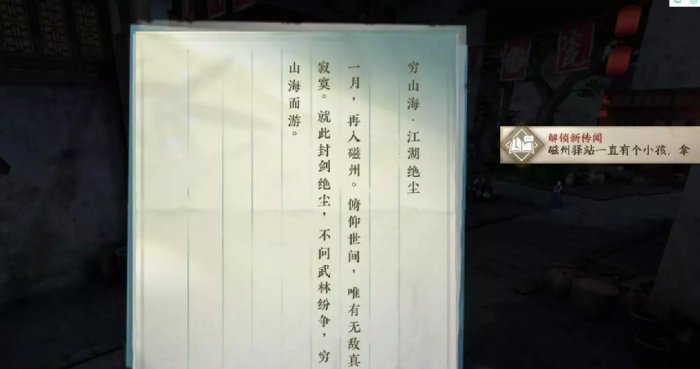 穷山海·江湖绝尘
一月，再入磁州。俯仰世间，唯有无敌真
寂寞。就此封剑绝尘，不问武林纷争，穷
山海而游。
解锁新传闻
磁州驿站一直有个小孩，拿